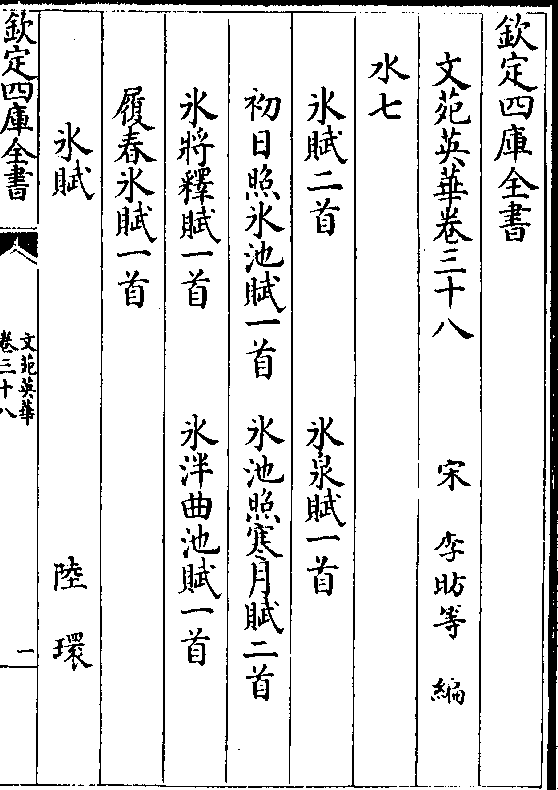 欽定四庫全書
文苑英華卷三十八　宋　李昉等　編
水七
氷賦二首　氷泉賦一首
初日照氷池賦一首　氷池照寒月賦二首
氷將釋賦一首　氷泮曲池賦一首
履春氷賦一首
氷賦　陸環
欽定四庫全書
文苑英華
卷三十八
一